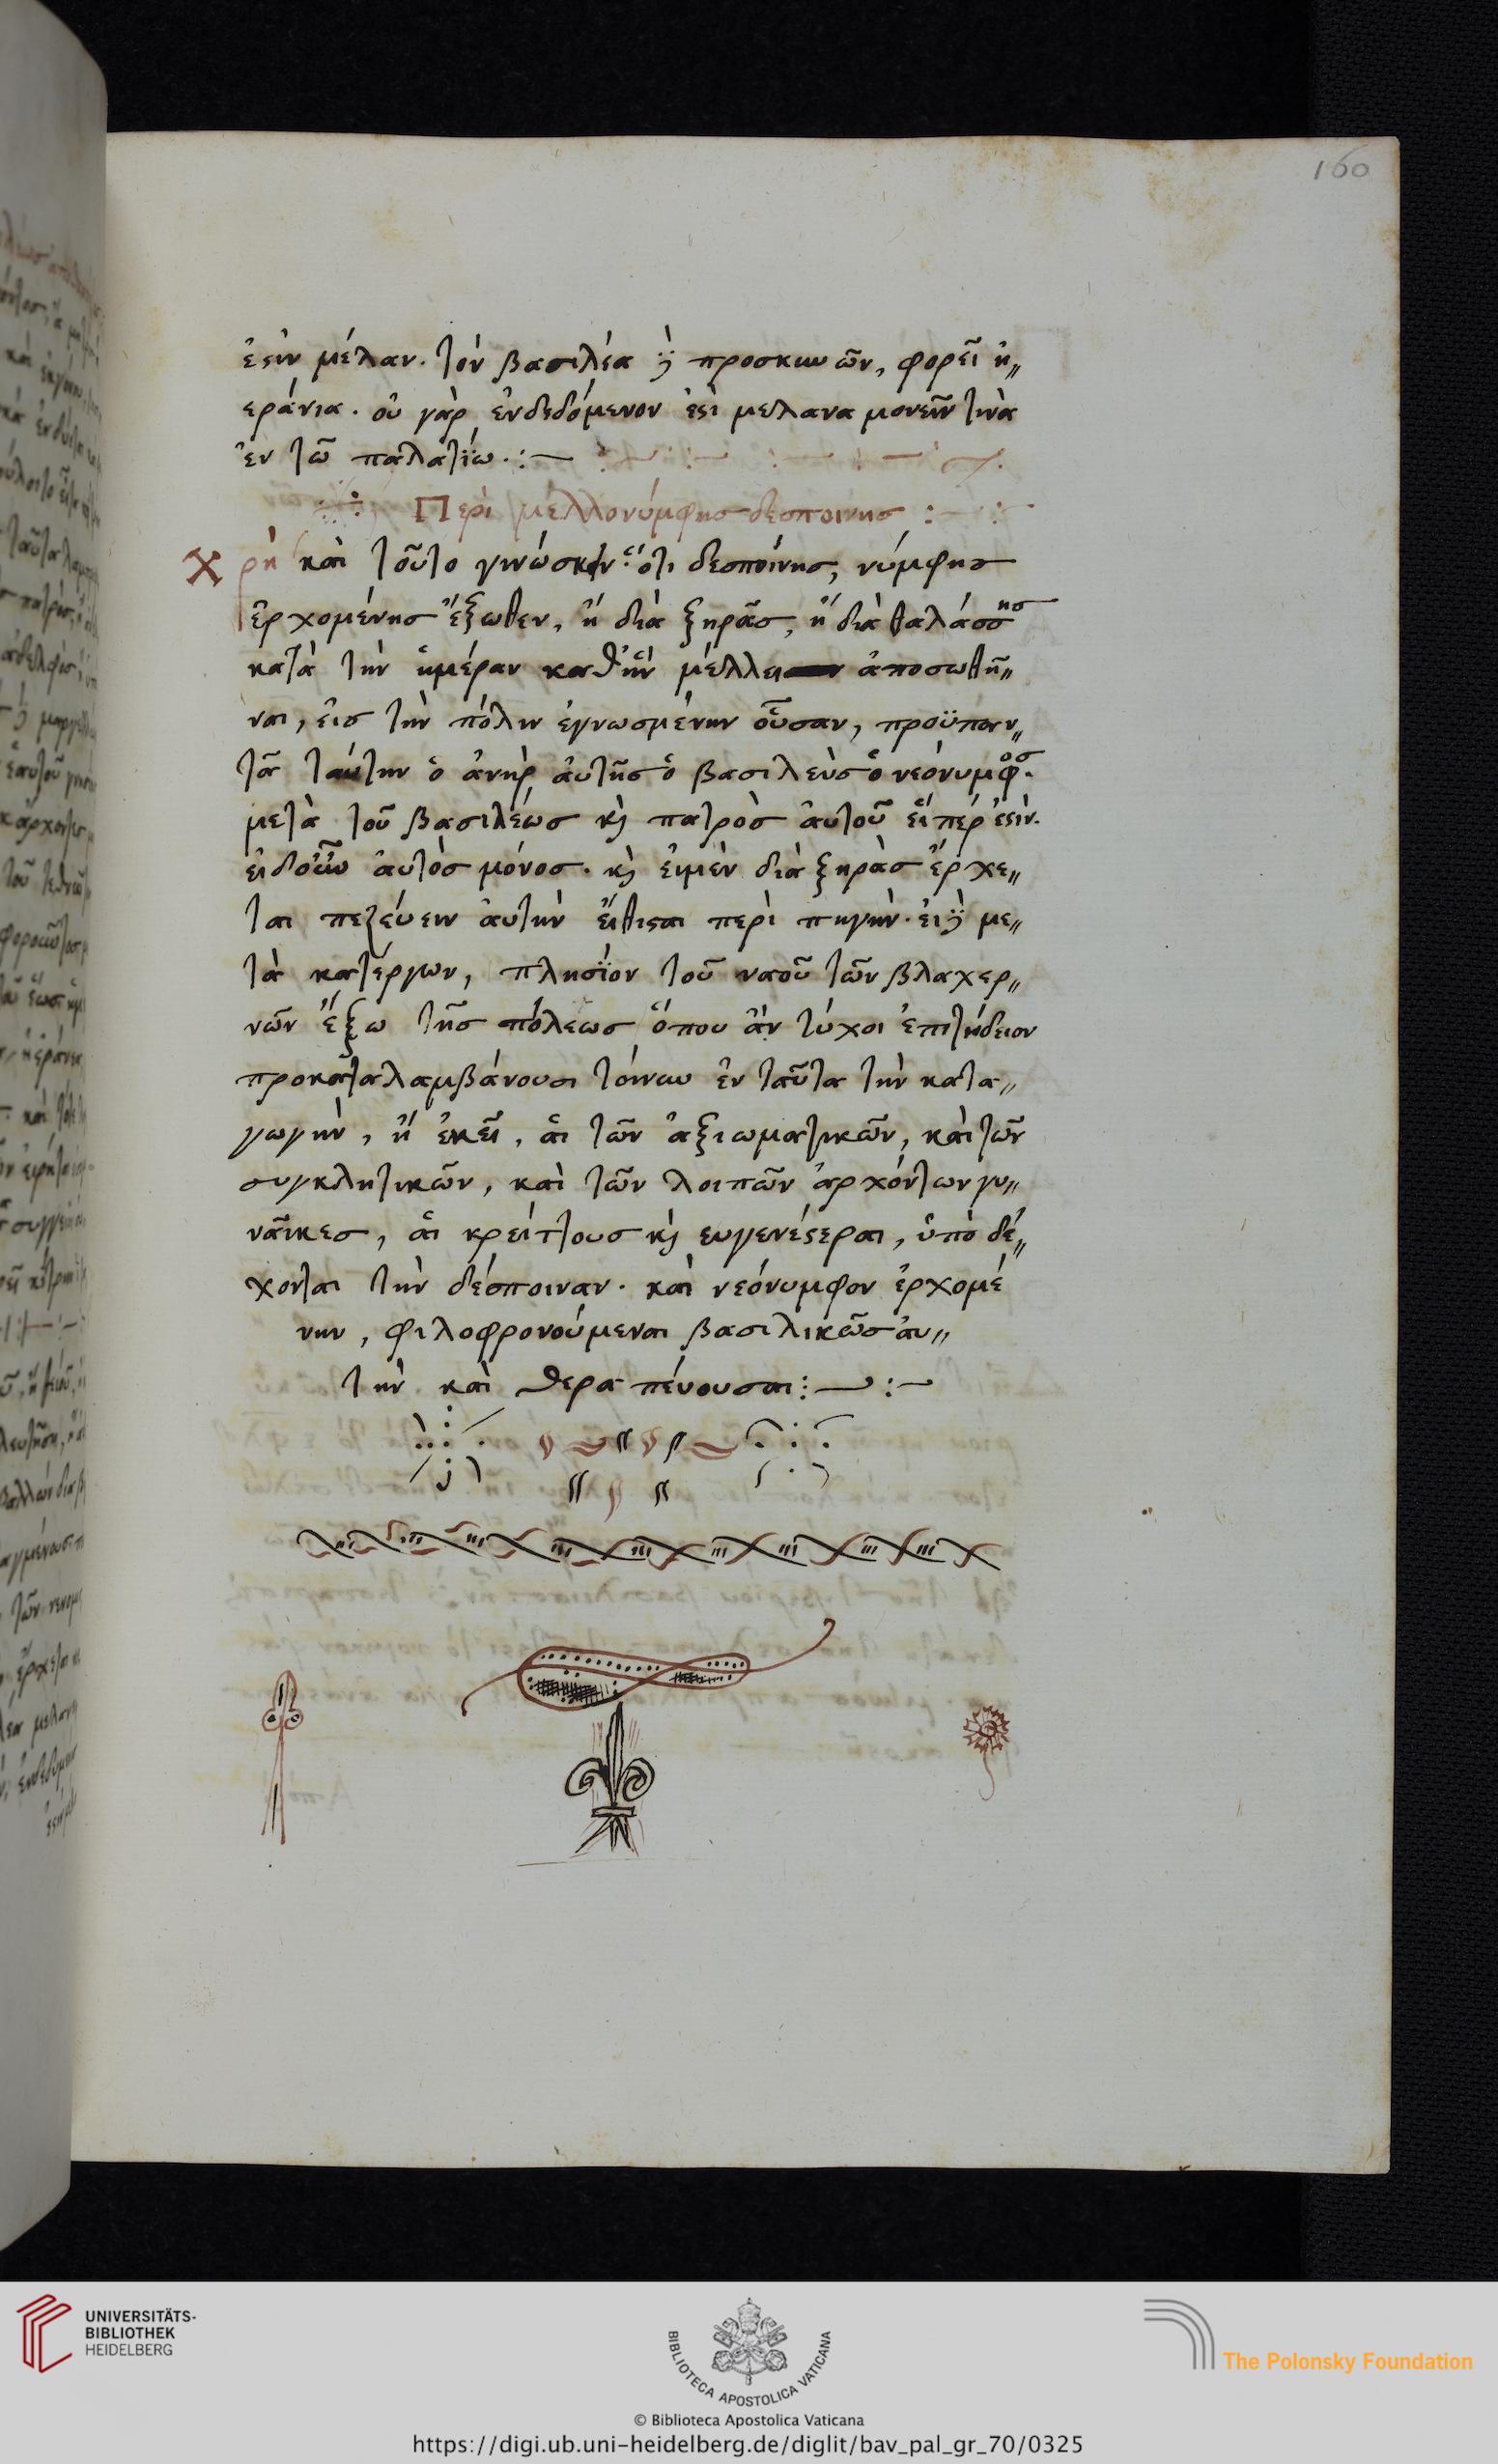 160
ἐϛὶν μέλαν. τὸν βασιλέα δὲ προσκυνῶν, φορεῖ ἠ〃
εράνια. οὐ γὰρ ἐνδεδόμενον ἐϛὶ μελανα μονεῖν τινὰ
ἐν τῶ παλατίω.:—
Περὶ μελλονύμφης δεσποίνης :
Χρὴ καὶ τοῦτο γινώσκειν ὅτι δεσποίνης, νύμφης
ἐρχομένης ἔξωθεν, ἢ διὰ ξηρᾶς, ἢ διὰ θαλάσσης
κατὰ τὴν ἡμέραν καθ' ἣν μέλλει ἀποσωθῆ〃
ναι, εἰς τὴν πόλιν ἐγνωσμένην οὖσαν, προϋπαν〃
τᾶ ταύτην ὁ ἀνὴρ ἀυτῆς ὁ βασιλεὺς ὁ νεόνυμφος.
μετὰ τοῦ βασιλέως κὶ πατρὸς ἀυτοῦ εἴπέρ ἐϛιν.
ἐιδοὖν ἀυτὸς μόνος. κὶ ἐιμὲν διὰ ξηρὰς ἔρχε〃
ται πεζέυειν ἀυτὴν εἴθιϛαι περὶ πηγὴν. ἐι δὲ με〃
τὰ κατέργων, πλησίον τοῦ ναοῦ τῶν βλαχερ〃
νῶν ἔξω τῆς πόλεως ὅπου ἂν τύχοι ἐπιτήδειον
προκαταλαμβάνουσι τοίνυν ἐν ταῦτα τὴν κατα〃
γωγὴν, ἢ ἐκεῖ, ἁι τῶν ἀξιωματικῶν, καὶ τῶν
συγκλητικῶν, καὶ τῶν λοιπῶν ἀρχόντων γυ〃
ναῖκες, ἁι κρείττους κὶ ευγενέϛεραι, ὑπὸ δέ〃
χονται τὴν δέσποιναν. καὶ νεόνυμφον ἐρχομέ
νην, φιλοφρονούμεναι βασιλικῶς ἀυ〃
τὴν καὶ θεραπέυουσαι:—:—
UNIVERSITÄTS-
BIBLIOTHEK
HEIDELBERG
BIBLIOTECA APOSTOLICA VATICANA
The Polonsky Foundation
© Biblioteca Apostolica Vaticana
https://digi.ub.uni-heidelberg.de/diglit/bav_pal_gr_70/0325